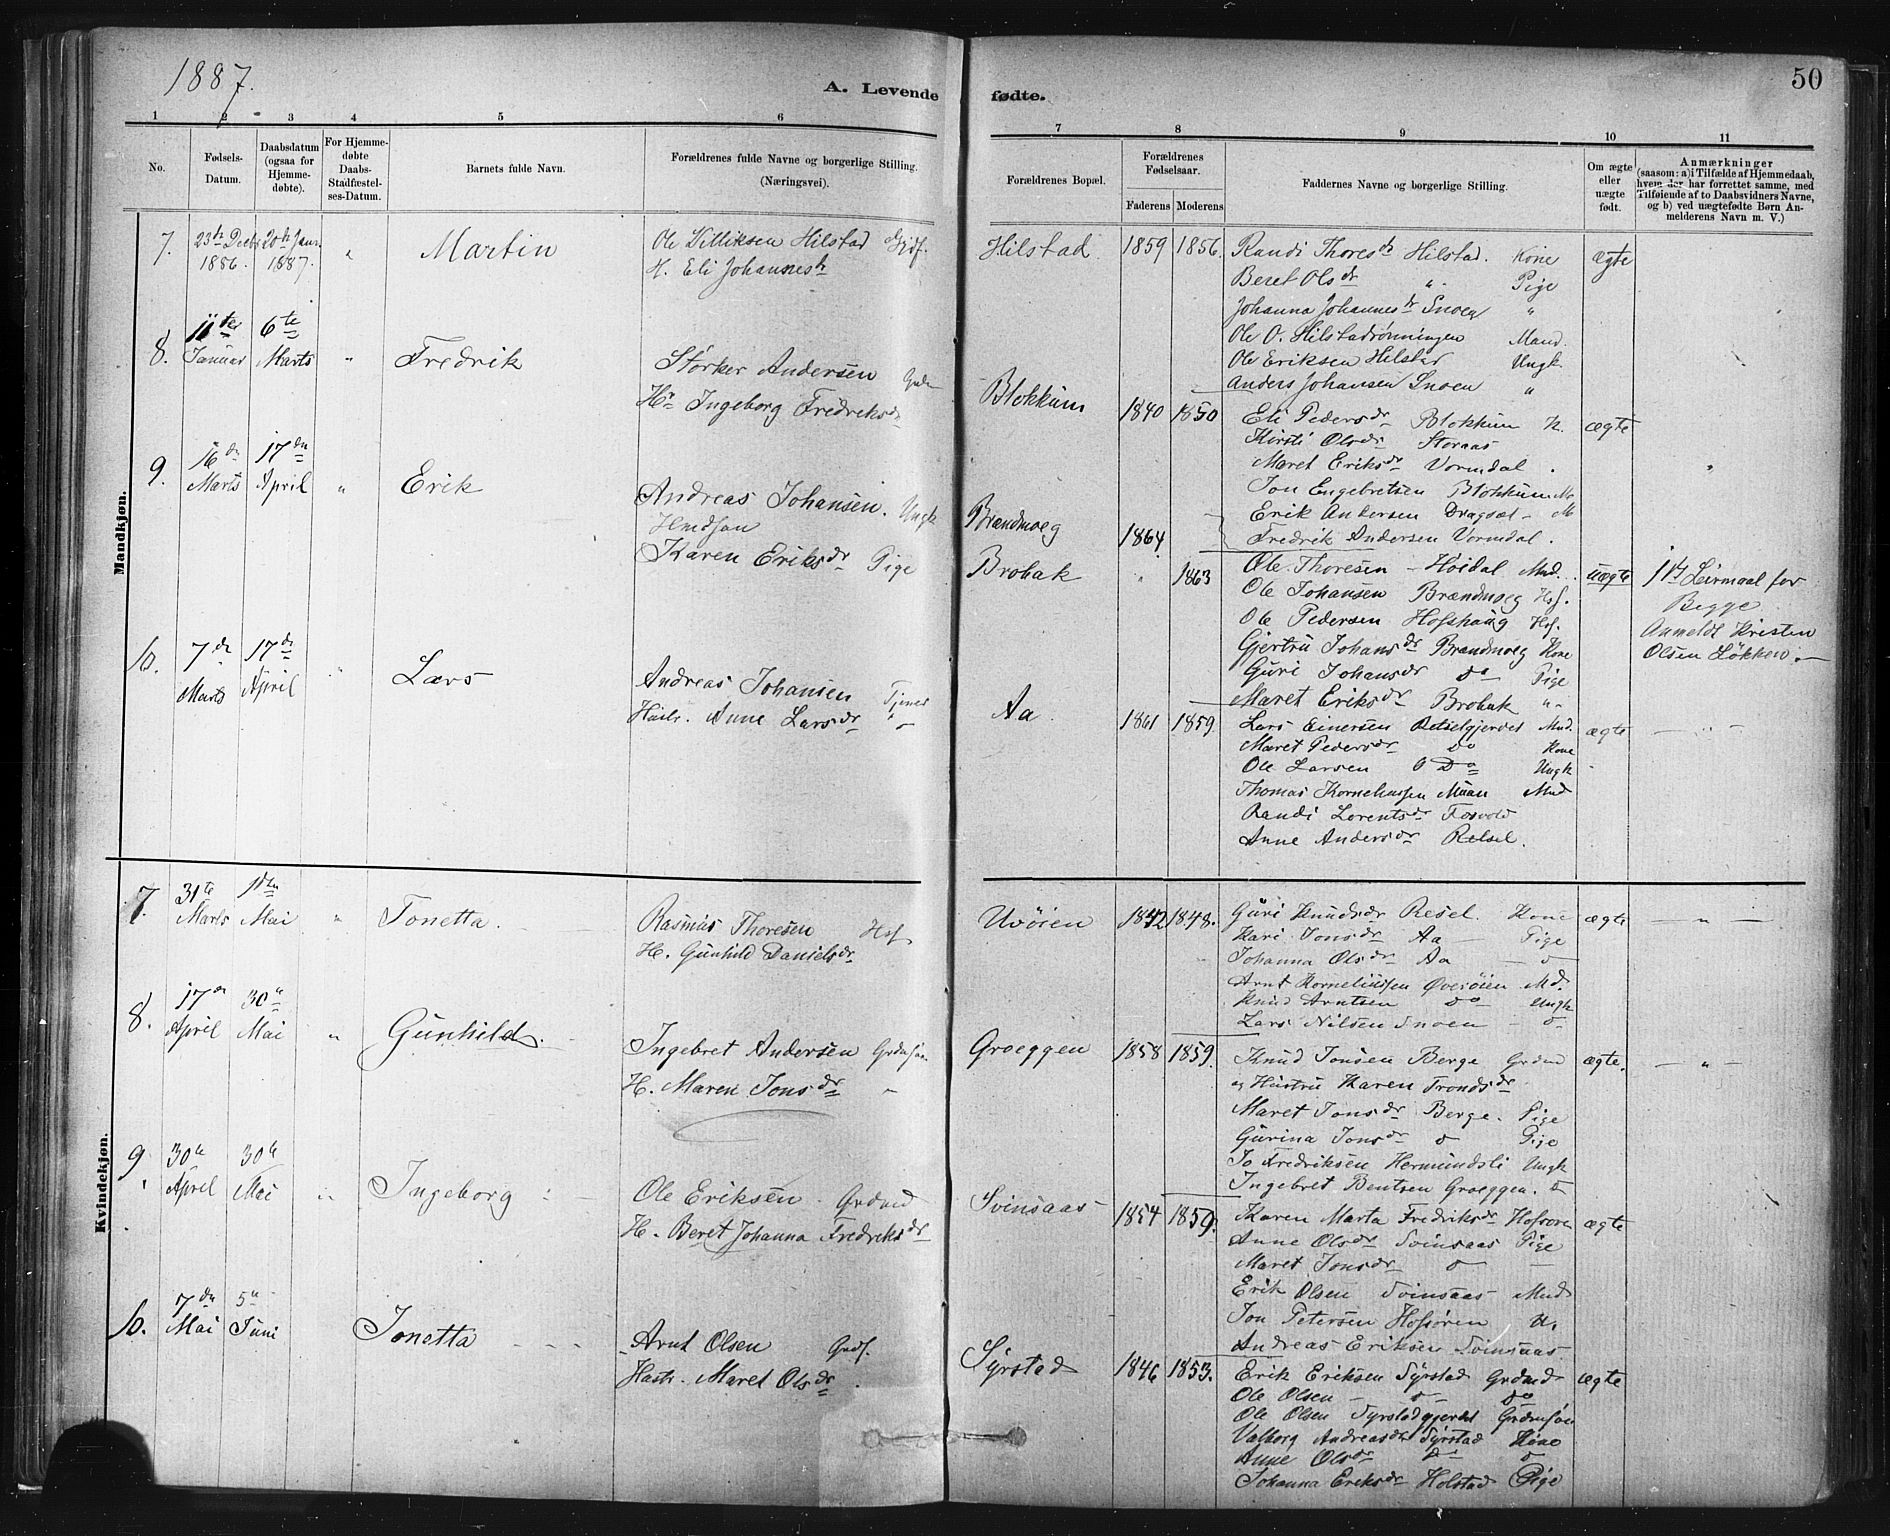 1887.
A. Levende fødte.
50
1 2 3 4 5 6 7 8 9 10 11
No.
Fødsels-Datum.
Daabsdatum (ogsaa for Hjemmedøbte).
For Hjemmedøbte Daabs-Stadfæstelses-Datum.
Barnets fulde Navn.
Forældrenes fulde Navne og borgerlige Stilling. (Næringsvei).
Forældrenes Bopæl.
Forældrenes Fødselsaar.
Faderens Moderens
Faddernes Navne og borgerlige Stilling.
Om ægte eller uægte født.
Anmærkninger
(saasom: a) i Tilfælde af Hjemmedaab, hvem der har forrettet samme, med Tilføiende af to Daabsvidners Navne, og b) ved uægtefødte Børn Anmelderens Navn m. V.)
Mandkjøn.
7. 23de Decbr 1886. 20de Janr. 1887. " Martin
Ole Hilstad
H. Eli Johannesdr
Hilstad 1859 1856.
Randi Thoresdr Hilstad. Kone
Beret Olsdr " Pige
Johanna Johannesdr Snoen "
Ole O. Hilstadrønningen Mand.
Ole Eriksen Hilstad Ungk.
Anders Johansen Snoen "
ægte
8. 11te Januar 6te Marts " Fredrik
Størker Andersen
Hu Ingeborg Fredriksdr
Blokkum 1840 1850
Eli Pedersdr Blokkum K.
Kirsti Olsdr Storaas
Maret Eriksdr Vormdal .
Jon Engebretsen Blokkum M
Erik Andersen Dragsæt - M
Fredrik Andersen Vormdal.
ægte "
9. 16de Marts 17de April " Erik
Andreas Johansen. Ungk
Karen Eriksdr Pige
Brændmoeg 1864
Brobak " 1863
Ole Thoresen - Hoidal Md.
Ole Johansen Brændmoeg Hsf.
Ole Pedersen Hofshaug Hsf.
Gjertru Johansdr Brændmoeg Kone
Guri Johansdr do Pige
Maret Eriksdr Brobak "
uægte
1ste Leirmaal for Begge.
Anmeldt Kristen Olsen Løkken.
10. 7de Marts 17de April " Lars
Andreas Johansen Tjener
Hustr. Anne Larsdr "
Aa 1861 1859
Lars Einersen Retselgjerdet Md.
Maret Pedersdr Do Kone
Ole Larsen Do Ungk
Thomas Korneliussen Muan Md
Randi Lorentsdr Fosvold
Anne Andersdr Retsel.
ægte "
Kvindekjøn.
7. 31te Marts 1ste Mai " Tonetta
Rasmus Thoresen Hsf
H. Gunhild Danielsdr
Uvøien 1842 1848.
Guri Knudsdr Resel. Kone
Kari Jonsdr Aa Pige
Johanna Olsdr Aa
Arnt Korneliussen Øverøien Md.
Knud Arntsen Do Ungk
Lars Nilsen Snoen
ægte "
8. 17de April 30te Mai " Gunhild.
Ingebret Andersen Grdmsøn
H. Maren Jonsdr "
Groeggen 1858 1859.
Knud Jonsen Berge Grdmd
og Hustru Karen Trondsdr
Maret Jonsdr Berge. Pige
Gurina Jonsdr Pige
Jo Fredriksen Hermundsli Ungk
Ingebret Bentsen Groeggen.
ægte. "
9. 30te April 30te Mai " Ingeborg
Ole Eriksen. Grdmd
H. Beret Johanna Fredriksdr
Svinsaas 1854 1859.
Karen Marta Fredriksdr Hofsøren
Anne Olsdr Svinsaas Pige
Maret Jonsdr
Erik Olsen Svinsaas Md
Jon Petersen Hofsøren U.
Andreas Eriksen Svinsaas
ægte
10. 7de Mai 5te Juni Jonetta
Arnt Olsen Grdf.
Hustr. Maret Olsdr.
Syrstad 1846 1853.
Erik Eriksen Syrstad Grdmd
Ole Olsen Do
Ole Olsen Syrstadgjerdet Grdmsøn
Valborg Andreasdr Syrstad Kone
Anne Olsdr Do
Johanna Eriksdr Holstad Pige
ægte